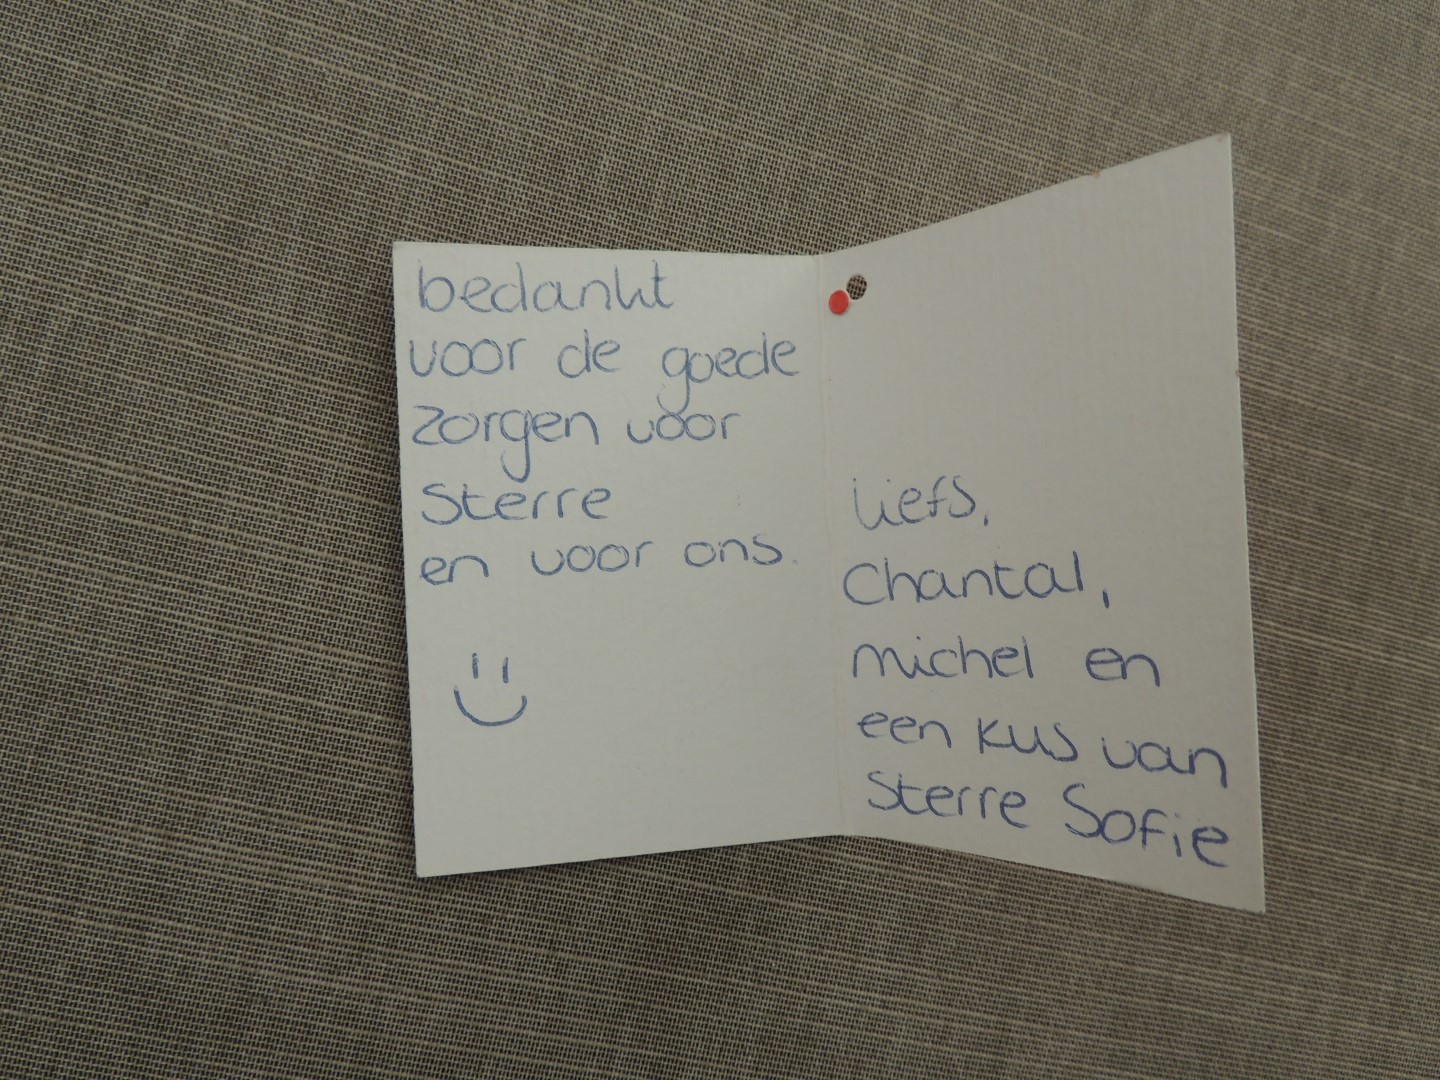 bedankt
voor de goede
zorgen voor
Sterre
en voor ons.
liefs,
Chantal,
michel en
een kus van
Sterre Sofie